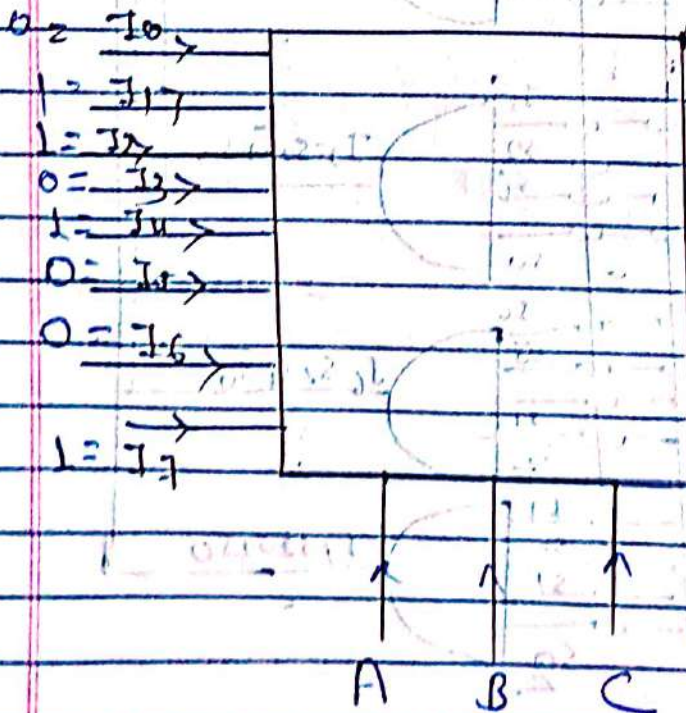 0 = I0
1 = I1
1 = I2
0 = I3
1 = I4
0 = I5
0 = I6
1 = I7
A B C